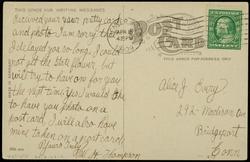 THIS SPACE FOR WRITING MESSAGES
POST CARD
THIS SPACE FOR ADDRESS ONLY
Received your very pretty card
and photo. I am sorry that
I delayed you so long. I could
not get the State flower, but
will try to have one for you
the next time. Yes I would like
to have you photo on a
postcard. I will also have
mine taken on a postcard.
Yours truly
H. Thompson
Alice J. Every
292 Madison Ave
Bridgeport
Conn